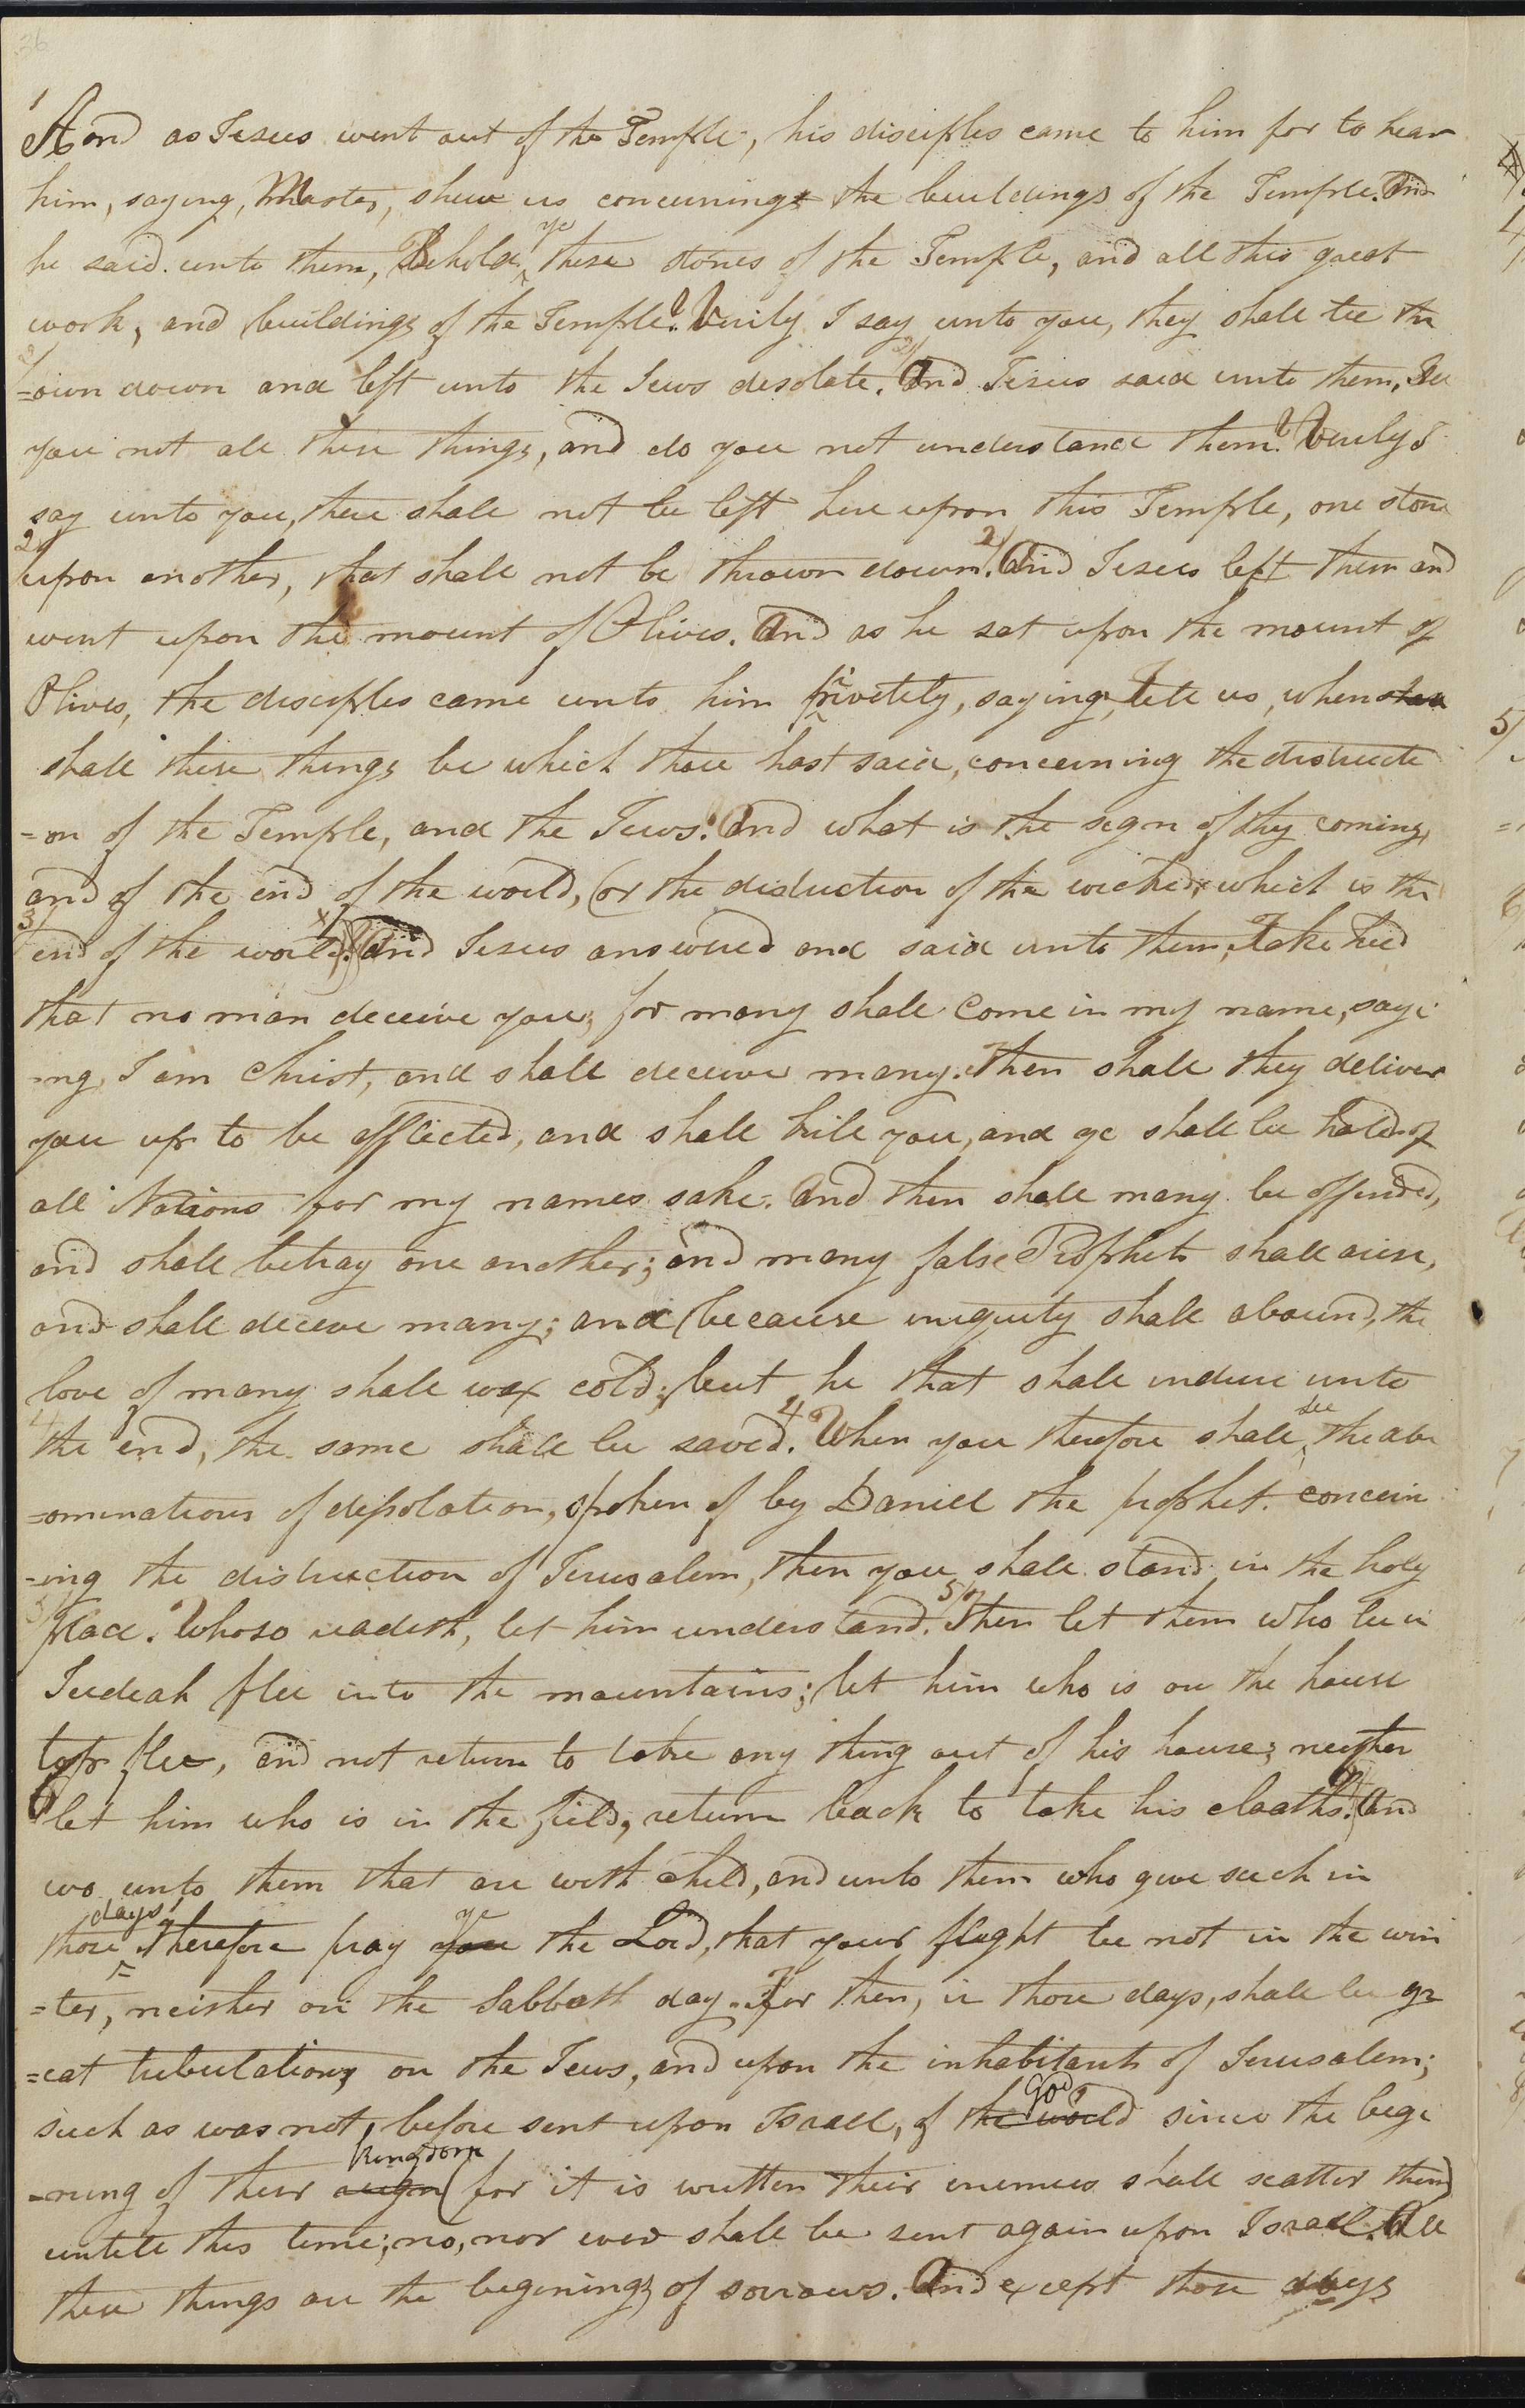 36
1
And as Jesus went out of the Temple, his disciples came to him for to hear
him, saying, Master, shew us concerning the buildings of the Temple. And
ye
he said unto them, Behold these stones of the Temple, and all this great
work, and buildings of the Temple? Verily I say unto you, they shall be thr
=own down and left unto the Jews desolate. And Jesus said unto them, See
you not all these things, and do you not understand them? Verily I
say unto you, there shall not be left here upon this Temple, one stone
2 upon another, that shall not be thrown down. 2 And Jesus left them and
went upon the mount of Olives. And as he sat upon the mount of
Olives, the disciples came unto him privetely, saying, tell us, when
shall these things be which thou hast said, concerning the distructi
=on of the Temple, and the Jews? And what is the sign of thy coming,
and of the end of the world, (or the distruction of the wicked, which is the
3 end of the world?) And Jesus answered and said unto them, Take heed
that no man deceive you; for many shall come in my name, sayi
=ng, I am Christ, and shall deceive many. Then shall they deliver
you up to be afflicted, and shall kill you, and ye shall be hated of
all Nations for my names sake. And then shall many be offended,
and shall betray one another; and many false Prophets shall arise,
and shall deceive many; and because iniquity shall abound, the
love of many shall wax cold; but he that shall indure unto
see
the end, the same shall be saved. 4 When you therefore shall the ab
=ominations of desolation, spoken of by Daniel the prophet concern
=ing the distruction of Jerusalem, then you shall stand in the holy
place. Whoso readeth, let him understand. 5 Then let them who be in
Judeah flee into the mountains; let him who is on the house
top flee, and not return to take any thing out of his house; neither
6 let him who is in the field, return back to take his cloaths. And
wo unto them that are with child, and unto them who give suck in
days ye
those therefore pray you the Lord, that your flight be not in the win
=ter, neither on the Sabbath day. For then, in those days, shall be gr
=eat tribulations on the Jews, and upon the inhabitants of Jerusalem;
God
such as was not, before sent upon Israel, of the world since the begi
Kingdom
=ning of their reign (for it is written their enemies shall scatter them)
untill this time; no, nor ever shall be sent again upon Israel. All
these things are the beginings of sorrows. And except those days
5